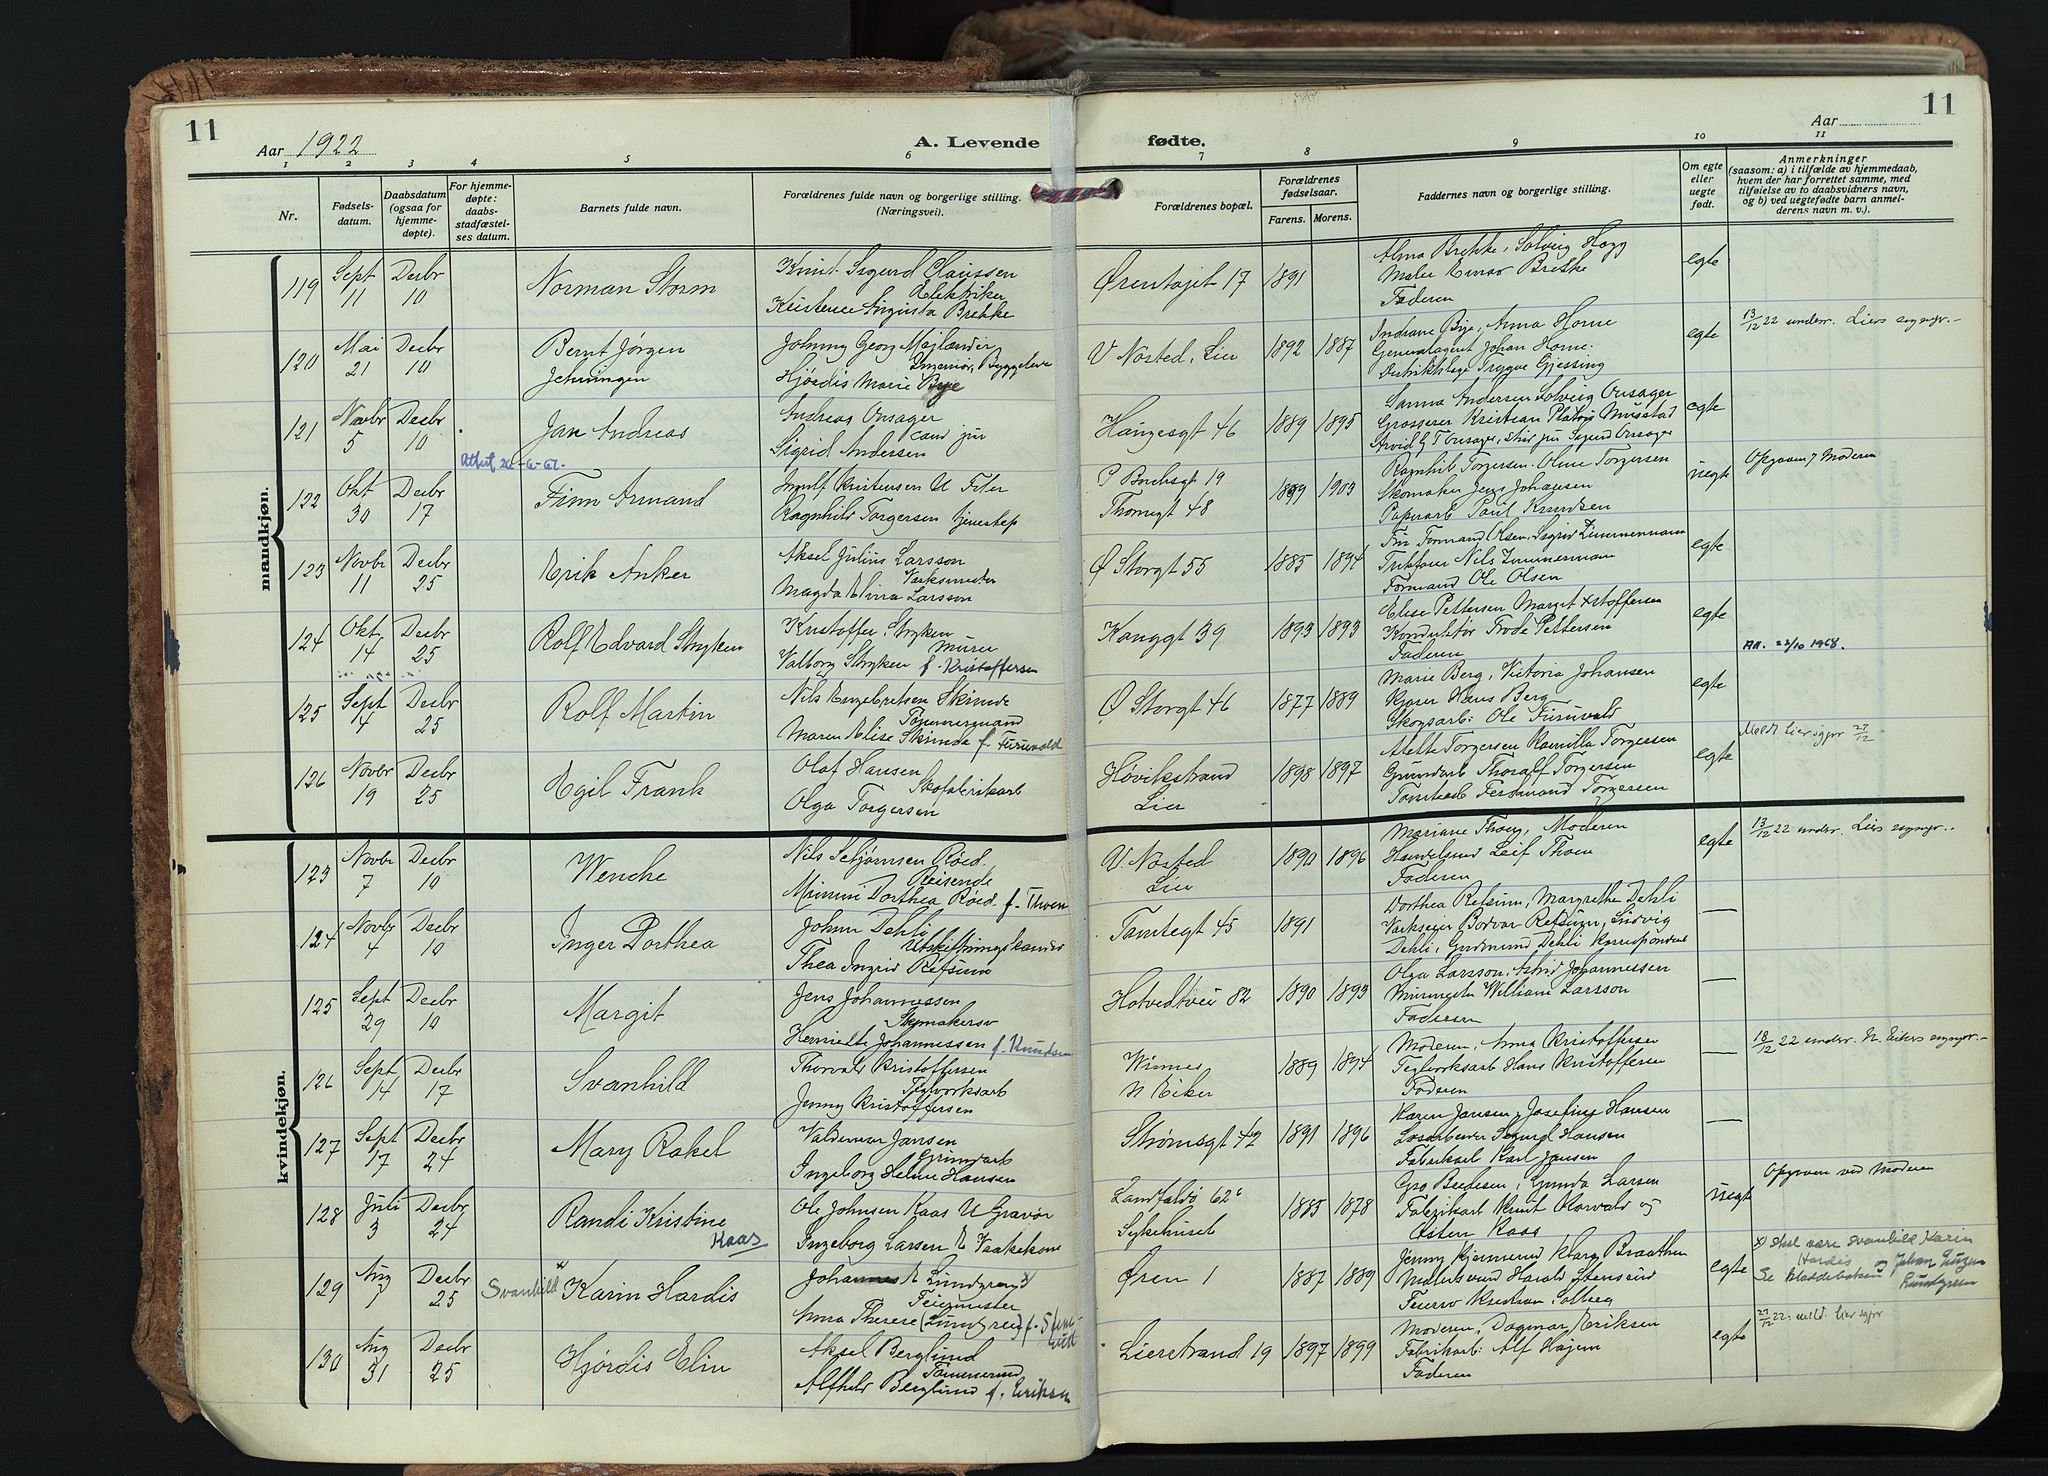 11
Aar 1922
A. Levende
1 2 3 4 5 6
Nr.
Fødsels-
datum.
Daabsdatum
(ogsaa for
hjemme-
døpte).
For hjemme-
døpte:
daabs-
stadfæstel-
ses datum.
Barnets fulde navn.
Forældrenes fulde navn og borgerlige stilling.
(Næringsvei).
mandkjøn.
119 Sept 11 Decbr 10 Norman Storm
Knut Sigurd Claussen
Elektriker
Kristence Augusta Brekke
120 Mai 21 Decbr 10 Bernt Jørgen
Johnny Georg Mejlænder
Hjørdis Marie Bye
121 Novbr 5 Decbr 10 Jan Andreas
Andreas Onsager
cand jur
Sigrid Andersen
122 Okt 30 Decbr 17 Finn Armand
Kristensen U
Ragnhild Torgersen tjenestep
123 Novbr 11 Decbr 25 Erik Anker
Aksel Julius Larsson
Verksmester
Magda Elvira Larsson
124 Okt 14 Decbr 25 Rolf Edvard Stryken
Kristoffer Stryken
Murer
Valborg Stryken f. Kristoffersen
125 Sept 4 Decbr 25 Rolf Martin
Nils Engebretsen Skrinde
Tømmermand
Maren Elise Skrinde f. Furuvald
126 Novbr 19 Decbr 25 Egil Frank
Olaf Hansen
Skofabrikarb
Olga Torgersen
kvindekjøn.
123 Novbr 7 Decbr 10 Wenche
Nils Røed
Reisende
Dorthea Røed f. Thoen
124 Novbr 4 Decbr 10 Inger Dorthea
Johan Dehli
Thea Ingrid Refsum
125 Sept 29 Decbr 10 Margit
Jens Johannessen
Skomakersv
Henriette Johannessen f. Knudsen
126 Sept 14 Decbr 17 Svanhild
Thorvald Kristoffersen
Teglverksarb
Jenny Kristoffersen
127 Sept 17 Decbr 24 Mary Rakel
Valdemar Jansen
Grindarb
Ingeborg Helene Hansen
128 Juli 3 Decbr 24 Randi Kristine
Kaas
Ole Johnsen Kaas U Gravør
Ingeborg Larsen E Vaskekone
129 Aug 7 Decbr 25 Svanhild Karin Hardis
Johannes E Lundgren x)
Feiermester
Anna Therese (Lundgren)
130 Aug 31 Decbr 25 Hjørdis Elin
Aksel Berglund
Tømmermd
Alfhild Berglund f. Eriksen
11
Aar
fødte.
7 8 9 10 11
Forældrenes bopæl.
Forældrenes
fødselsaar.
Farens. Morens.
Faddernes navn og borgerlige stilling.
Om egte
eller
uegte
født.
Anmerkninger
(saasom: a) i tilfælde av hjemmedaab,
hvem der har forrettet samme, med
tilføielse av to daabsvidners navn,
og b) ved uegtefødte barn anmel-
derens navn m. v.).
1891
Alma Brekke, Solveig Hagg
Maler Einar Brekke
Faderen
egte
V Nøsted, Lier 1892 1887
Anna Horne
Generalagent Johan Horne
Distriktslæge Trygve Gjessing
egte
13/12 22 underr. Liers sognepr.
Haugesgt 46 1889 1895
Sanna Andersen Solveig Onsager
Grosserer Kristian Platou Mustad
egte
19
Thornegt 48
1903
Ragnhild Torgersen Torgersen
Skomaker Jens Johansen
Papirarb Paul Knudsen
uegte
Opgaven av Moderen
Ø Storgt 55 1885 1894
Olsen, Sigrid Zimmermann
Nils Zimmermann
Formand Ole Olsen
egte
Konggt 39 1893 1893
Elise Pettersen Margit Kristoffersen
Konduktør Frode Pettersen
Faderen
egte
22/10 1968.
Ø Storgt 46 1877 1889
Marie Berg, Victoria Johansen
Kjører Hans Berg
Skogsarb: Ole Furuvald
egte
Høvikstrand
Lier
1898 1897
Torgersen Kamilla Torgersen
Thoralf Torgersen
Ferdinand Torgersen
egte
Meldt Lier sgpr 27/12
V. Nøsted
Lier
1890 1896
Mariane Thoen, Moderen
Handelsmd Leif Thoen
Faderen
egte
13/12 22 underr. Liers sognepr.
Tomtegt 45 1891
Dorthea Refsum, Margrethe Dehli
Verkseier Bodvar Refsum, Ludvig
Dehli, Gudmund Dehli
—
Hotvedtvei 82 1890 1893
Olga Larsson, Astrid Johannessen
William Larsson
Faderen
—
N Eiker
1889 1894
Moderen, Anna Kristoffersen
Teglverksarb Hans Kristoffersen
Faderen
—
18/12 22 underr. N. Eikers sognepr.
Strømsgt 42 1891 1896
Karen Jansen, Josefine Hansen
Sigurd Hansen
Fabrikarb Karl Jansen
—
Landfaldø 62
Sykehuset
1885 1878
Gunda Larsen
Fabrikarb Knut Horvald og
Østen Kaas
uegte
Opgaven ved Moderen
Øren 1 1887 1889
Klara Braathen
Harald Stensrud
Feiersv Kristian Solberg
egte
x) skal være Svanhild Karin
Hardis og Johan
Lundgren
Lierstrand 19 1897 1899
Moderen, Dagmar Eriksen
Fabrikarb: Alf Hajem
Faderen
egte
27/12 22 meld. Lier sgpr